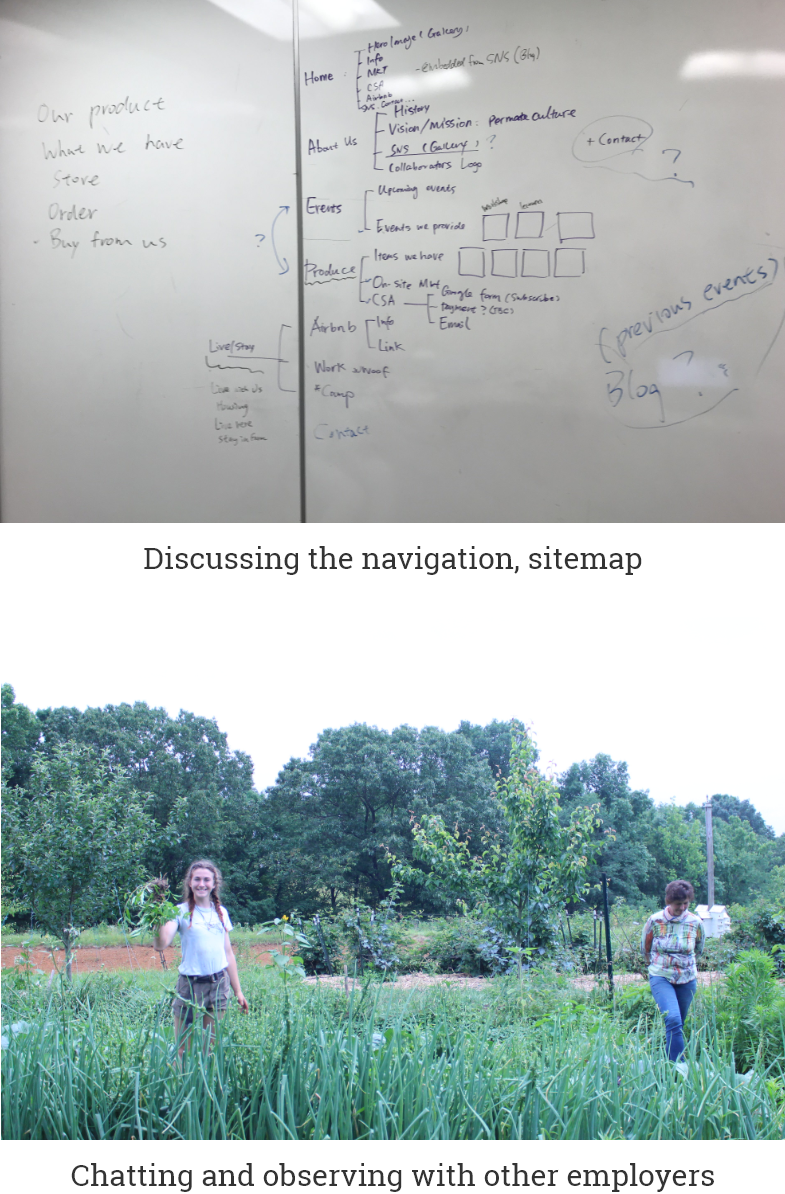 Our product
What we have
Store
Order
- Buy from us
Home
Hero Image (Gallery)
Info
MKT
CSA
Airbnb
SNS. Contact...
- Embedded from SNS (Blog)
About Us
History
Vision/Mission: Permaculture
SNS (Gallery) ?
Collaborators Logo
+ Contact
?
Events
Upcoming events
Events we provide
workshop
?
Produce
Items we have
On-site Mkt
CSA
Google form (Subscribe)
Payment? (TBC)
Email
Airbnb
Info
Link
Live/Stay
Live with Us
Housing
Live here
Stay in farm
Work wwoof
*Camp
Contact
(previous events)
Blog ?
Discussing the navigation, sitemap
Chatting and observing with other employers